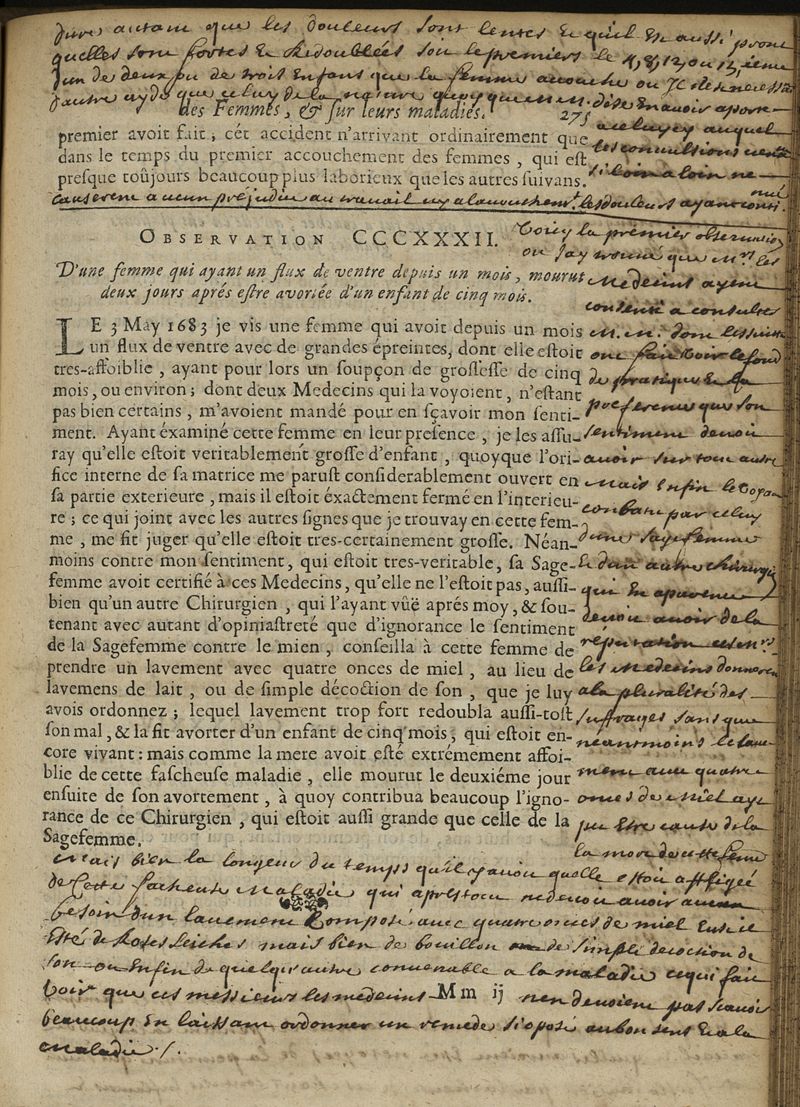 dure autant que les douleurs sont lentes & qu'il en aussi
quelles sont fortes & Redoublées soit le premiers le 4, 8, 12 ou 15 ieme
Jun de deux ou de trois Enfans que la femme accouche ou
d'autre ayde que celuy de la nature quoy que
des Femmes, & ſur leurs maladies. 275
premier avoit fait ; cét accident n'arrivant ordinairement que
dans le temps du premier accouchement des femmes , qui eſt
preſque toûjours beaucoup plus laborieux que les autres ſuivans.
a celuy cy auquel
les convultions
si loin a loin ne
causerent aucun préjudice au travail ny a l'accouchemt. les douleurs ayant
OBSERVATION CCCXXXII.
Voicy la premier observation
ou j'ay trouué que Mrs. les
D'une femme qui ayant un flux de ventre depuis un mois, mourut
deux jours aprés eſtre avortée d'un enfant de cinq mois.
Medecins ayent
consenti a consulter
LE 3 May 1683 je vis une femme qui avoit depuis un mois
un flux de ventre avec de grandes épreintes, dont elle eſtoit
tres-affoiblie , ayant pour lors un ſoupçon de groſſeſſe de cinq
mois, ou environ ; dont deux Medecins qui la voyoient , n'eſtant
pas bien certains , m'avoient mandé pour en ſçavoir mon ſenti-
ment. Ayant éxaminé cette femme en leur preſence , je les aſſu-
ray qu'elle eſtoit veritablement groſſe d'enfant , quoyque l'ori-
fice interne de ſa matrice me paruſt conſiderablement ouvert en
ſa partie exterieure , mais il eſtoit éxactement fermé en l'interieu-
re ; ce qui joint avec les autres ſignes que je trouvay en cette fem-
me , me fit juger qu'elle eſtoit tres-certainement groſſe. Néan-
moins contre mon ſentiment, qui eſtoit tres-veritable, ſa Sage-
femme avoit certifié à ces Medecins, qu'elle ne l'eſtoit pas, auſſi-
bien qu'un autre Chirurgien , qui l'ayant vûë aprés moy, & ſou-
tenant avec autant d'opiniaſtreté que d'ignorance le ſentiment
de la Sagefemme contre le mien , conſeilla à cette femme de
prendre un lavement avec quatre onces de miel , au lieu de
lavemens de lait , ou de ſimple décoction de ſon , que je luy
avois ordonnez ; lequel lavement trop fort redoubla auſſi-toſt
ſon mal , & la fit avorter d'un enfant de cinq mois, qui eſtoit en-
core vivant : mais comme la mere avoit eſté extrémement affoi-
blie de cette faſcheuſe maladie , elle mourut le deuxiéme jour
enſuite de ſon avortement , à quoy contribua beaucoup l'igno-
rance de ce Chirurgien , qui eſtoit auſſi grande que celle de la
Sagefemme.
M. M. dont
ont fait voir le fond
de pratique & la
preference que son
sentiment devoit
avoir sur tout autre
mais enfin le voyant
combatu par celuy
d'une sagefemme
& d'un autre chirurgi
qui en aparence
devoit avoir de la
reputation
les medecins donneren
a la pluralité des
suffrages sans que
neantmoins le lave
ment avec quatre
onces de miel aye
pu Etre cause de la
la mort de cette femme
Mais bien la longeur du temps qu'il y avoit quelle estoit affligée
de cette facheuse maladie qui apres tout ne devoit avoir aucun
besoin d'un lavement composé avec quatre onces de miel
de Roses seiches mais bien de bouillon ou de simple decoction de
son ou enfin de quelqu'autre convenable a la maladie ce qui fait
voir que ces messieurs les medecins n'en devoient pas scavoir
Mm ij
beaucoup En laissant ordonner un remede s'y oposé au bon sens & a la
maladie ./.